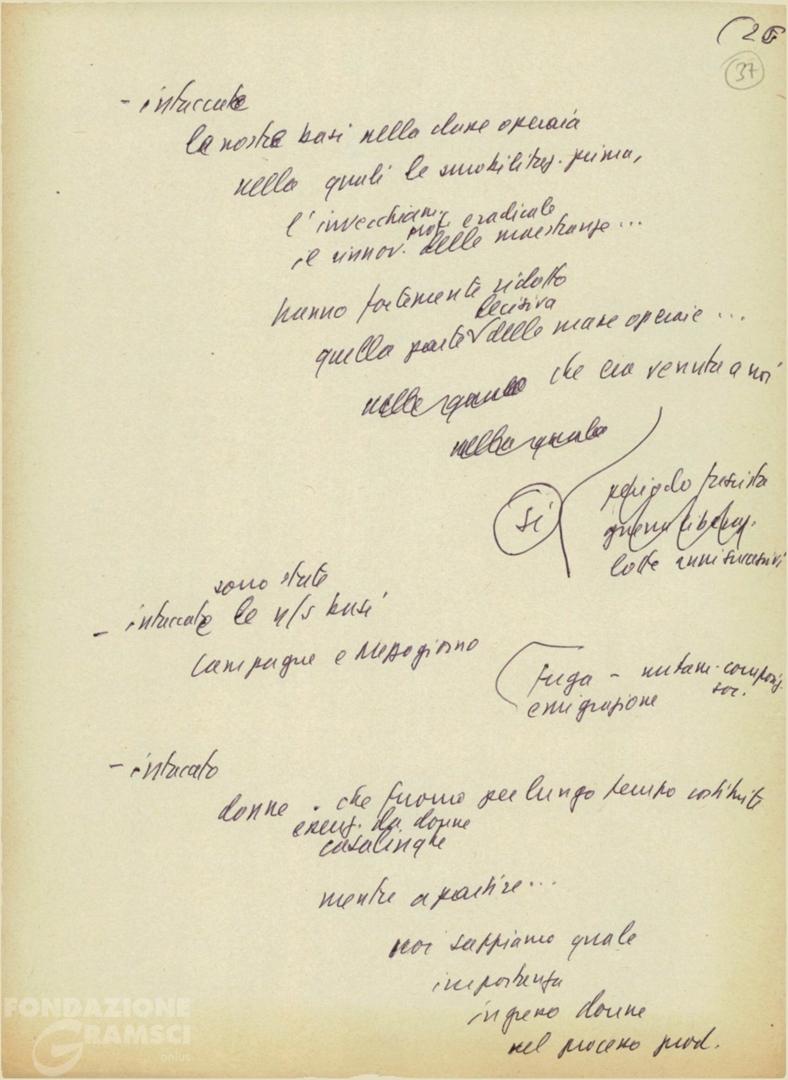 (26
37
- intaccate
la nostra basi nella classe operaia
nella quali le smobilitaz. prima,
l'invecchiam.
poi eradicale
il rinnov. delle maestranze ...
hanno fortemente ridotto
decisiva
quella parte √ delle masse operaie ...
nelle quale che era venuta a noi
nella quale
si
periodo fascista
guerra liberaz.
lotte anni successivi
sono state
- intaccate le n/s basi
Campagne e Mezzogiorno
Fuga - mutam. composiz.
soc.
emigrazione
- intaccato
donne . che furono per lungo tempo costituite
essenz. da donne
casalinghe
mentre a partire ...
noi sappiamo quale
importanza
ingresso donne
nel processo prod.
FONDAZIONE
GRAMSCI
onlus